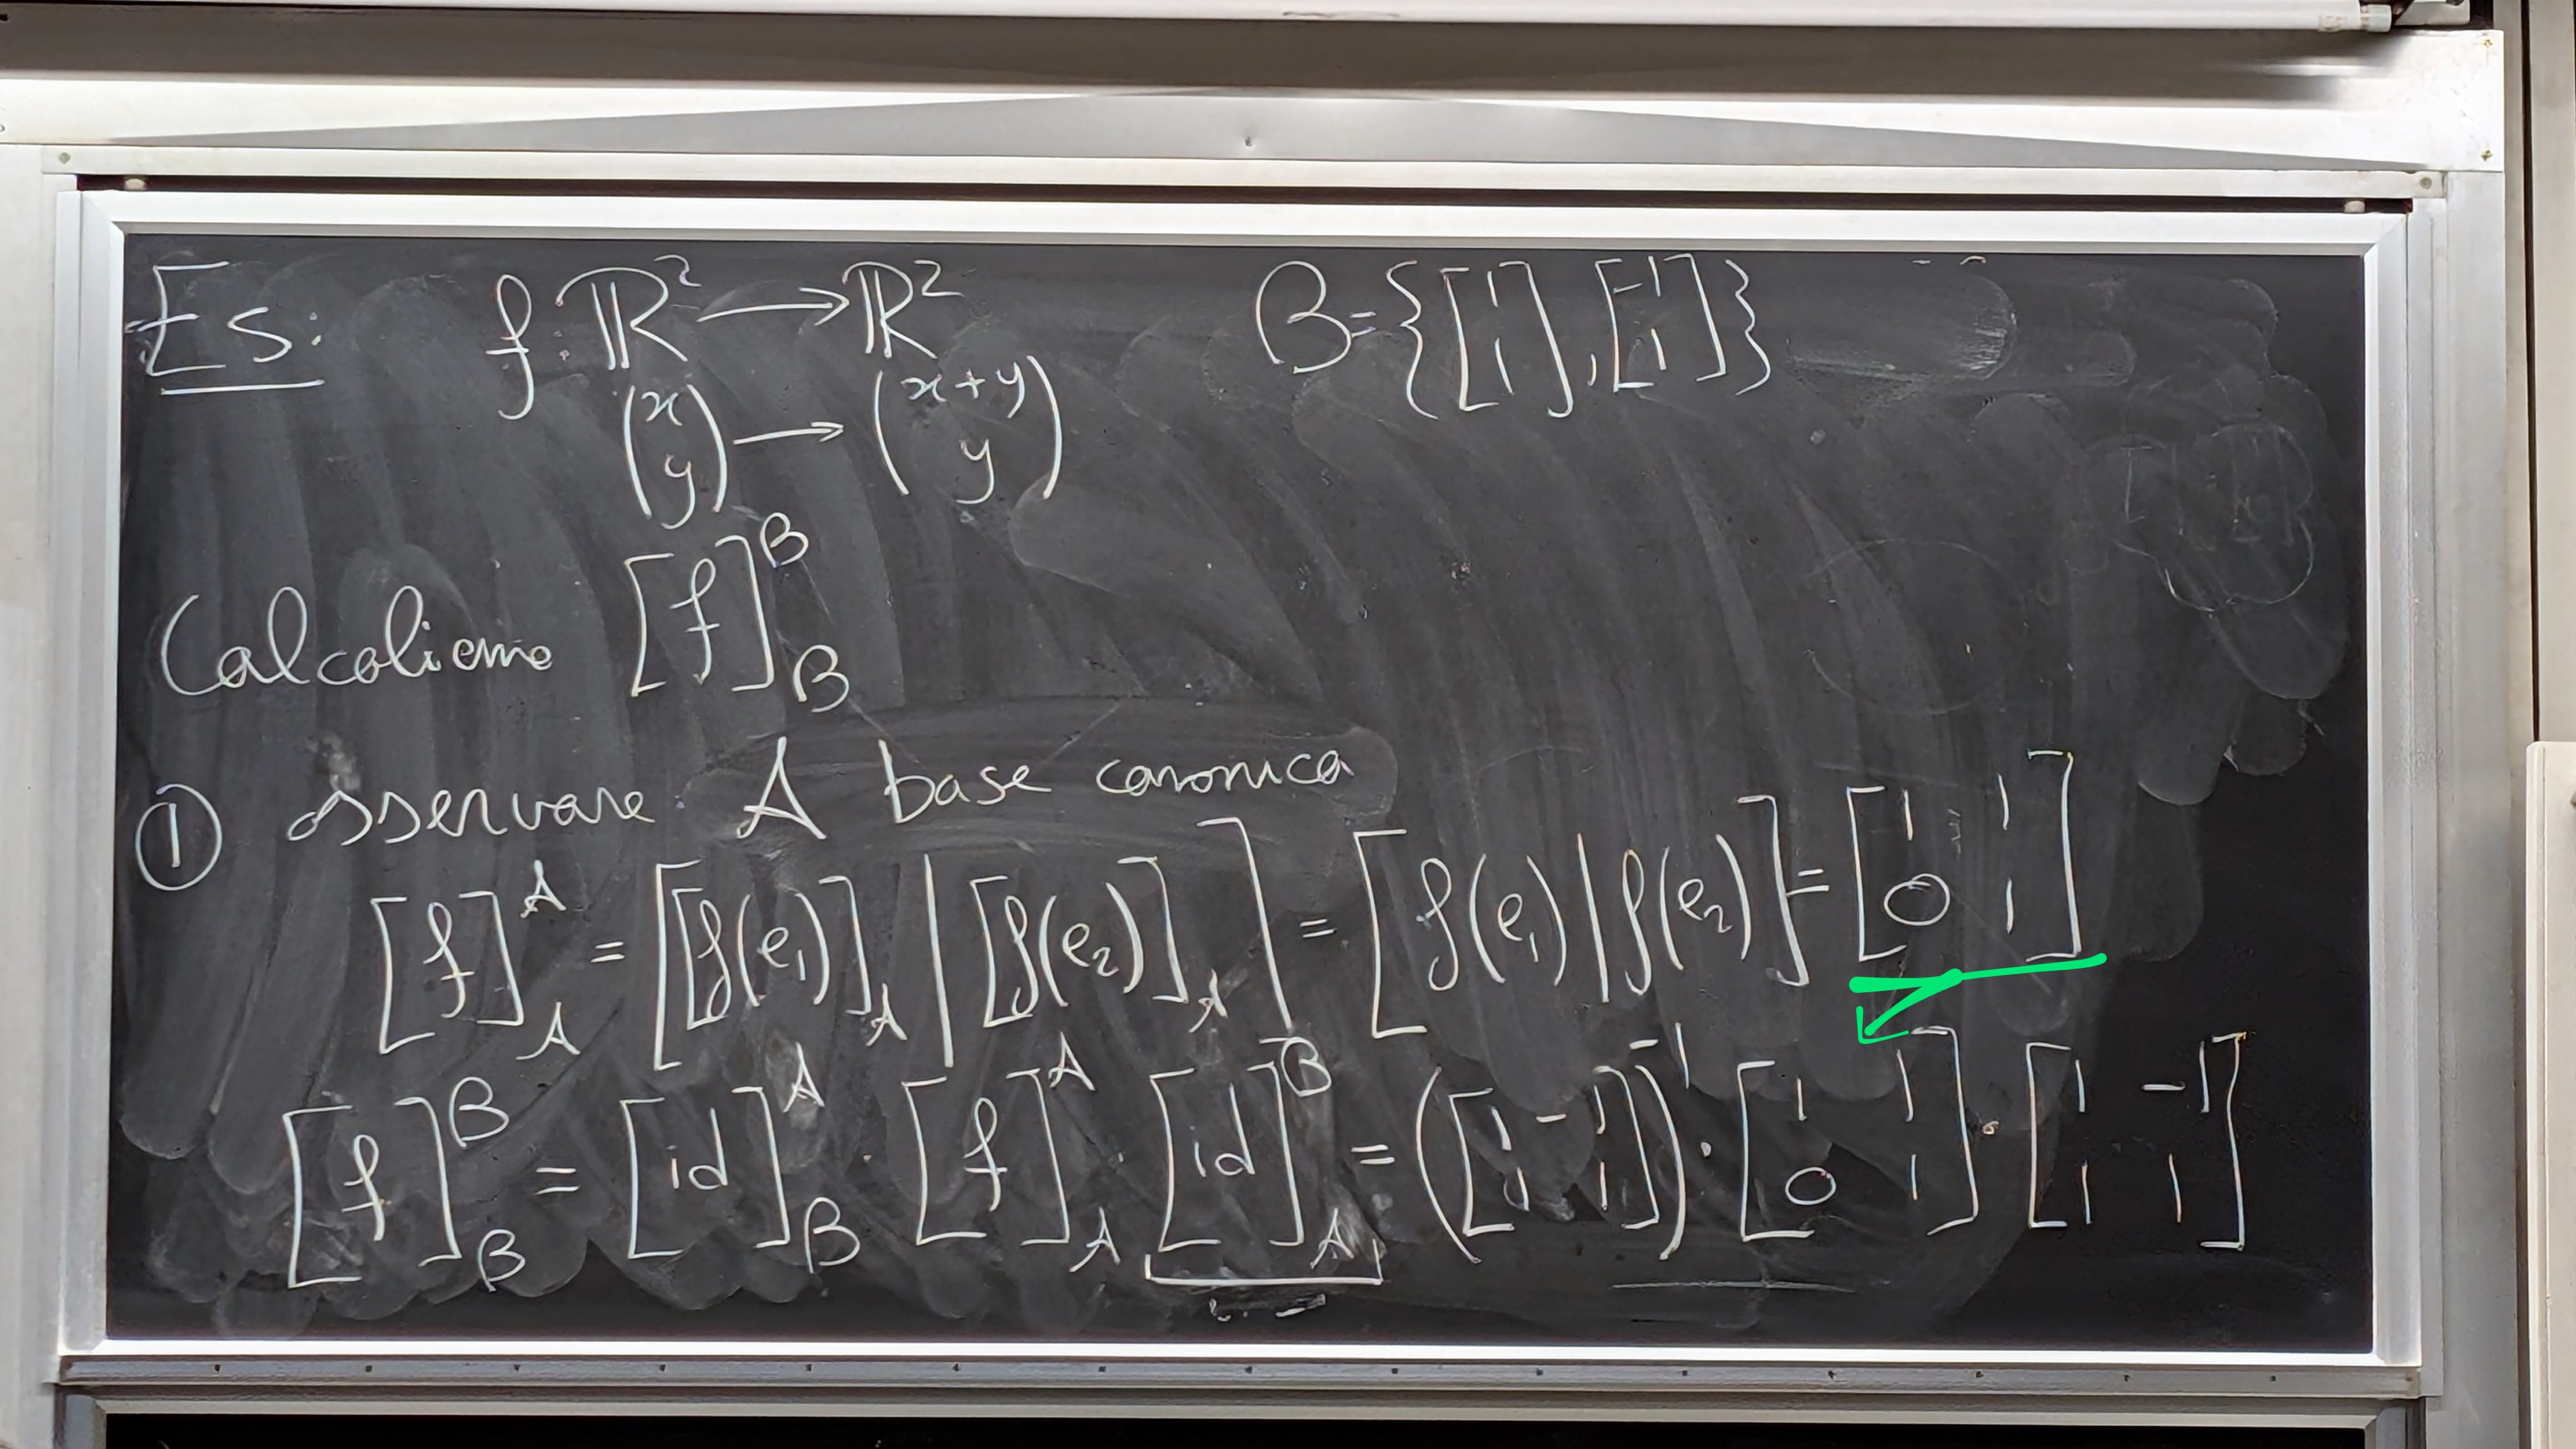 Es: f: ℝ² → ℝ² B = {[1 1], [-1 1]}
(x y) → (x+y y)
Calcoliamo [f]^B_B
① osservare A base canonica
[f]^A_A = [[f(e₁)]_A | [f(e₂)]_A] = [f(e₁) | f(e₂)] = [1 1; 0 1]
[f]^B_B = [id]^A_B · [f]^A_A · [id]^B_A = ([1 -1; 1 1])^-1 · [1 1; 0 1] · [1 -1; 1 1]